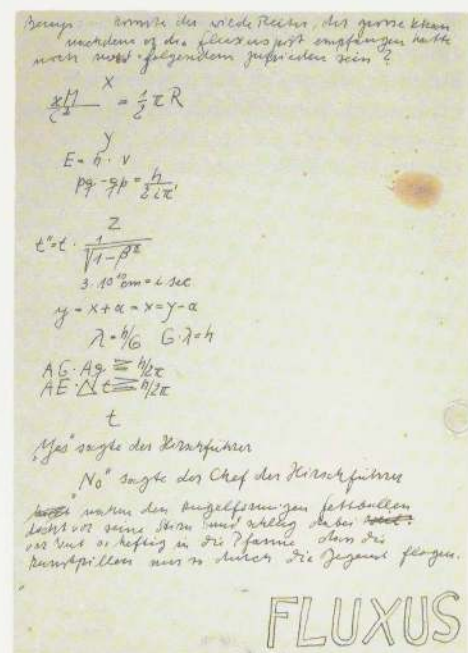 Beuys: konnte der wilde Reiter, der grosse Khan
nachdem er die fluxuspost empfangen hatte
noch mit folgendem zufrieden sein?
X
xM/C² = 1/2 π R
y
E = h · v
pq - qp = h/2iπ
Z
t" = t · 1/√1-β²
3 · 10¹⁰ cm = i sec
y = x + a = x = y - a
λ = h/G G · λ = h
ΔG · Δq ≧ h/2π
ΔE · Δt ≧ h/2π
t
„Yes" sagte der Hirschführer
„No" sagte der Chef der Hirschführer
nahm den kugelförmigen fettballen
dicht vor seine Stirn und schlug dabei
vor Wut so heftig in die Pfanne, dass die
nur so durch die Gegend flogen.
FLUXUS